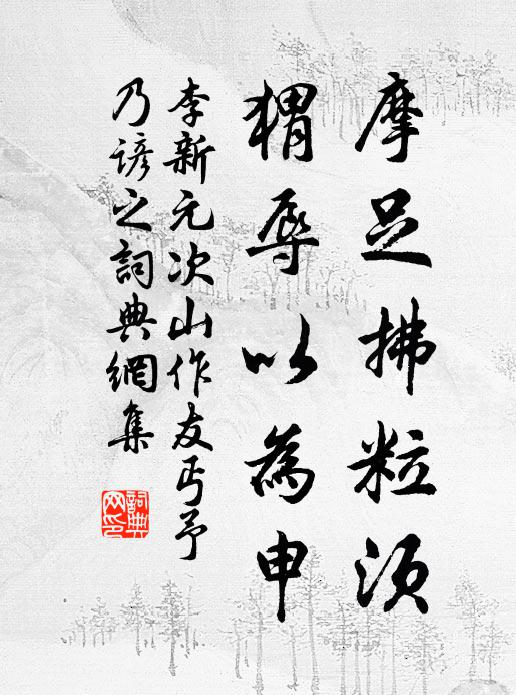 摩足拂粒須
猬辱以為申
李新元次山作友丐予
乃諺之詞典網集
詞典網印